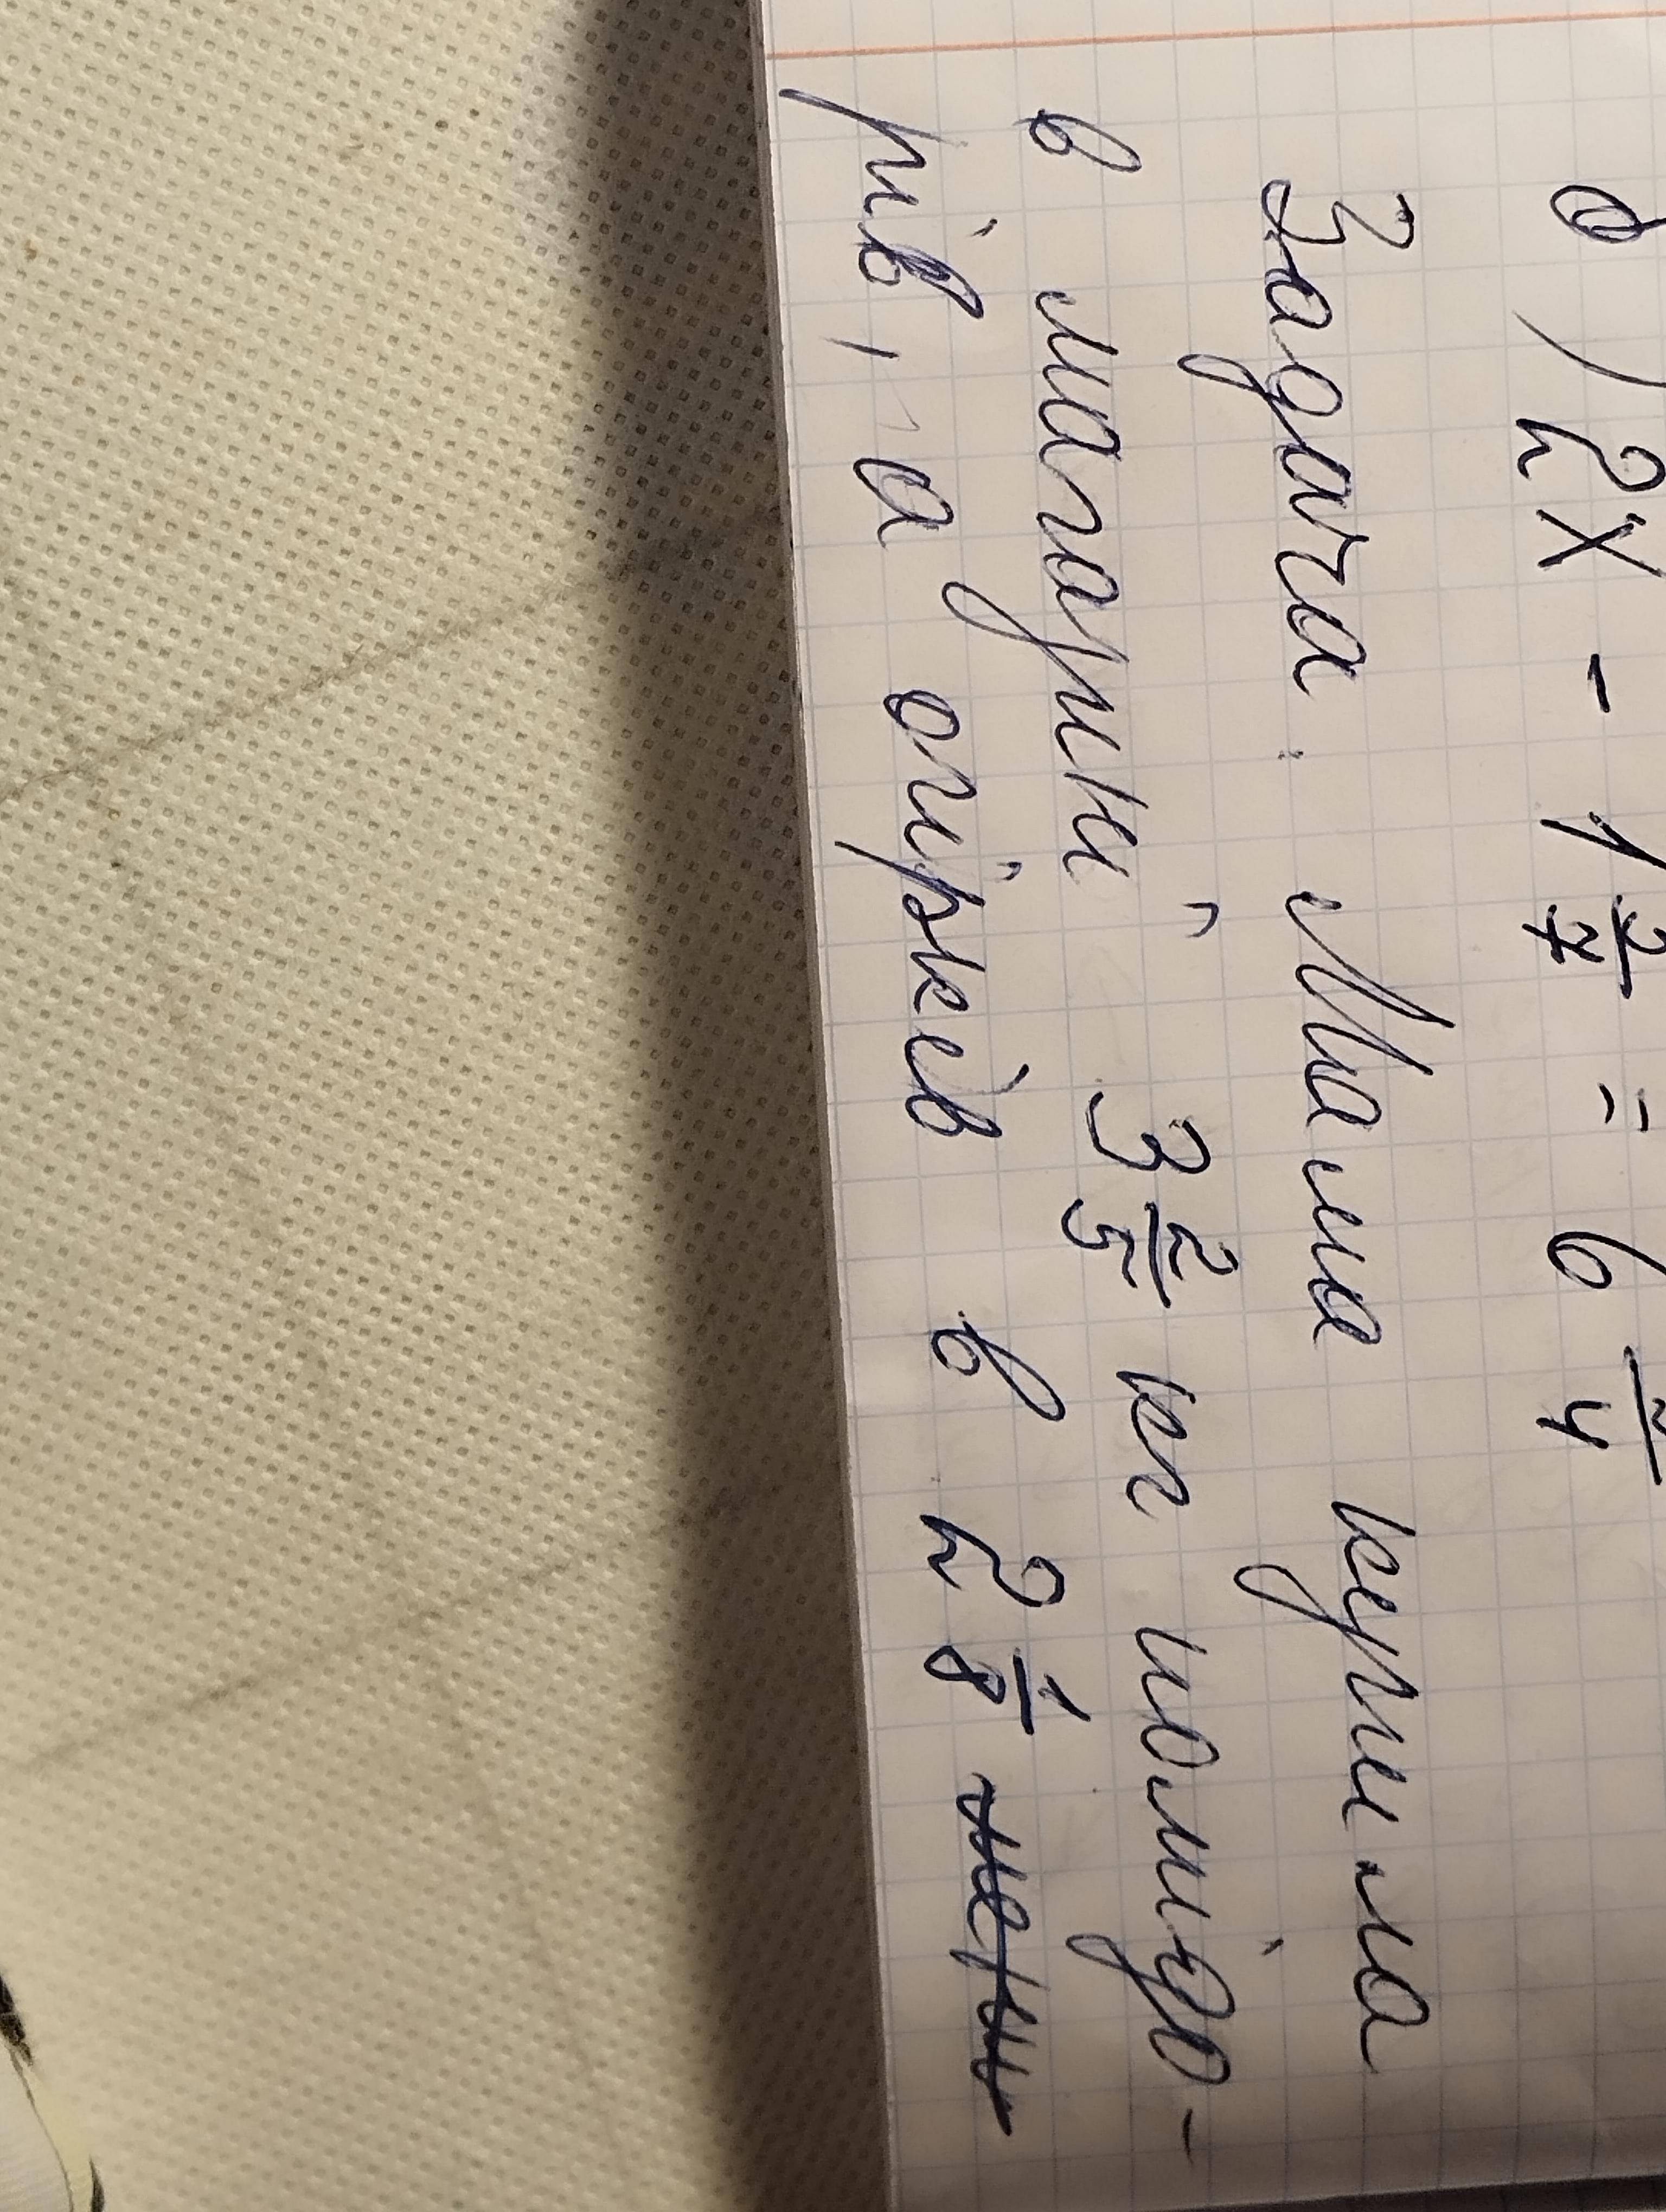 д) 2x - 1 2/7 = 6 /4
Задача. Мама купила
в магазині 3 2/5 кг помідо-
рів, а огірків в 2 1/8